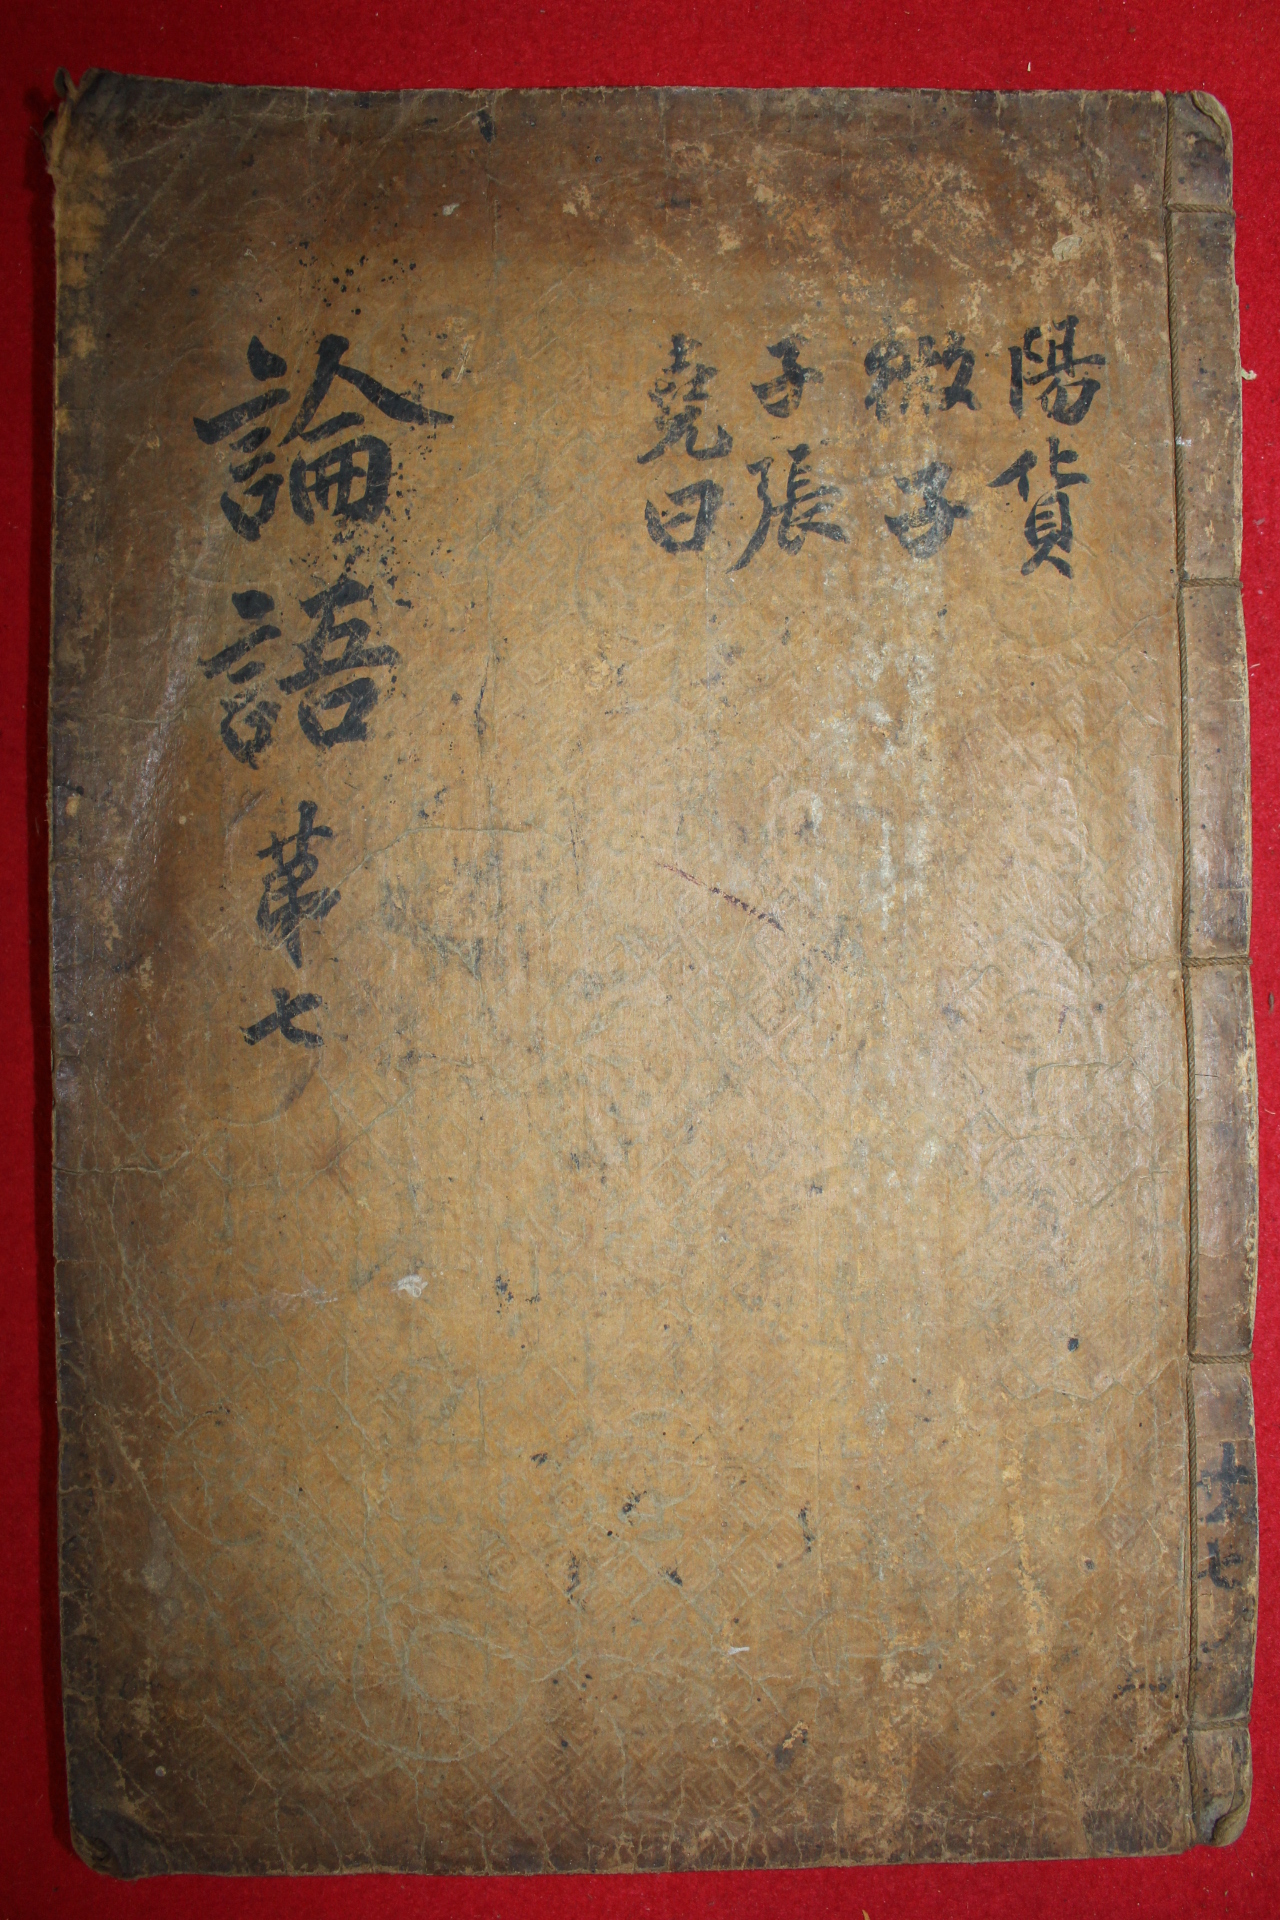 陽貨
微子
子張
堯曰
論語 苐七
共七